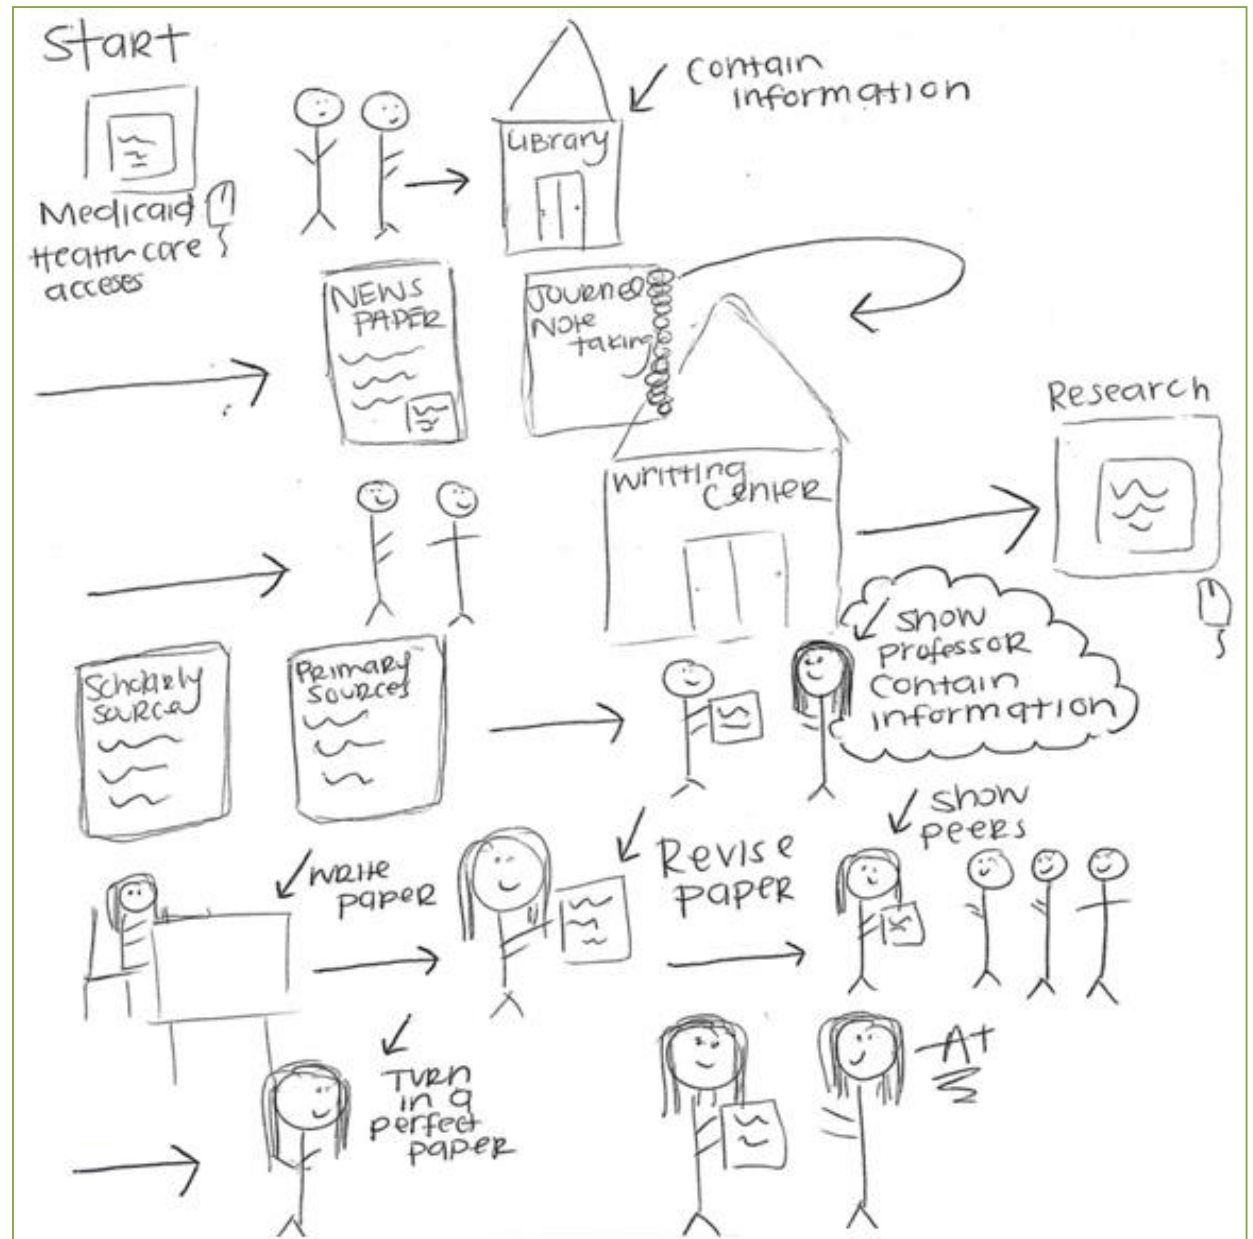 Start
Medicaid
Healthcare
acceses
Library
Contain
information
NEWS
PAPER
Journel
Note
taking
Writting
Center
Research
Scholarly
source
Primary
sources
Show
Professor
Contain
information
Write
paper
Revise
paper
Show
peers
Turn
in a
perfect
paper
A+